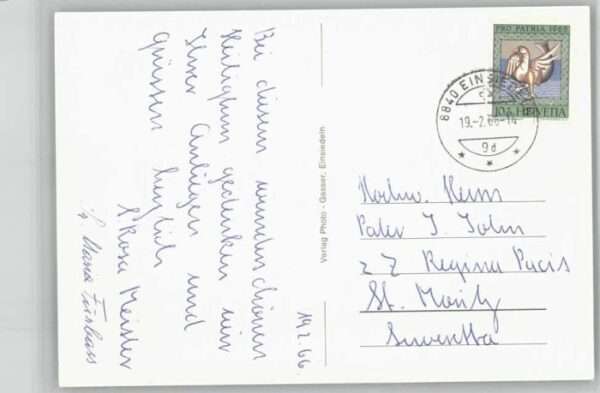 19.2.66
Bei diesem wunderschönen
Heiligtum gedenken wir
Ihrer Anliegen und
grüssen herzlich
S. Rosa Meister
S. Maria
Verlag Photo - Gasser, Einsiedeln
PRO PATRIA 1966
10+10 HELVETIA
8840 EINSIEDELN
19.-2.66-14
9d
Hochw. Herrn
Pater J. John
z Z Regina Pacis
St. Moritz
Suvretta